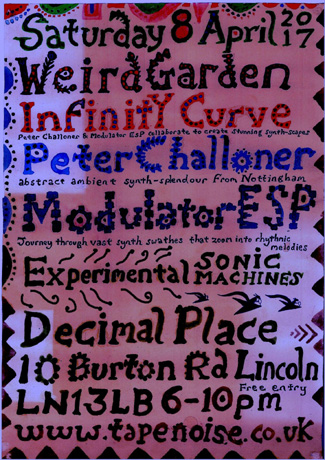 Saturday 8 April 2017
Weird Garden
Infinity Curve
Peter Challoner & Modulator ESP collaborate to create stunning synth-scapes
Peter Challoner
abstract ambient synth-splendour From Nottingham
Modulator ESP
Journey through vast synth swathes that zoom into rhythmic melodies
Experimental SONIC MACHINES
Decimal Place
10 Burton Rd Lincoln
Free entry
LN13LB 6-10pm
www.tapenoise.co.uk